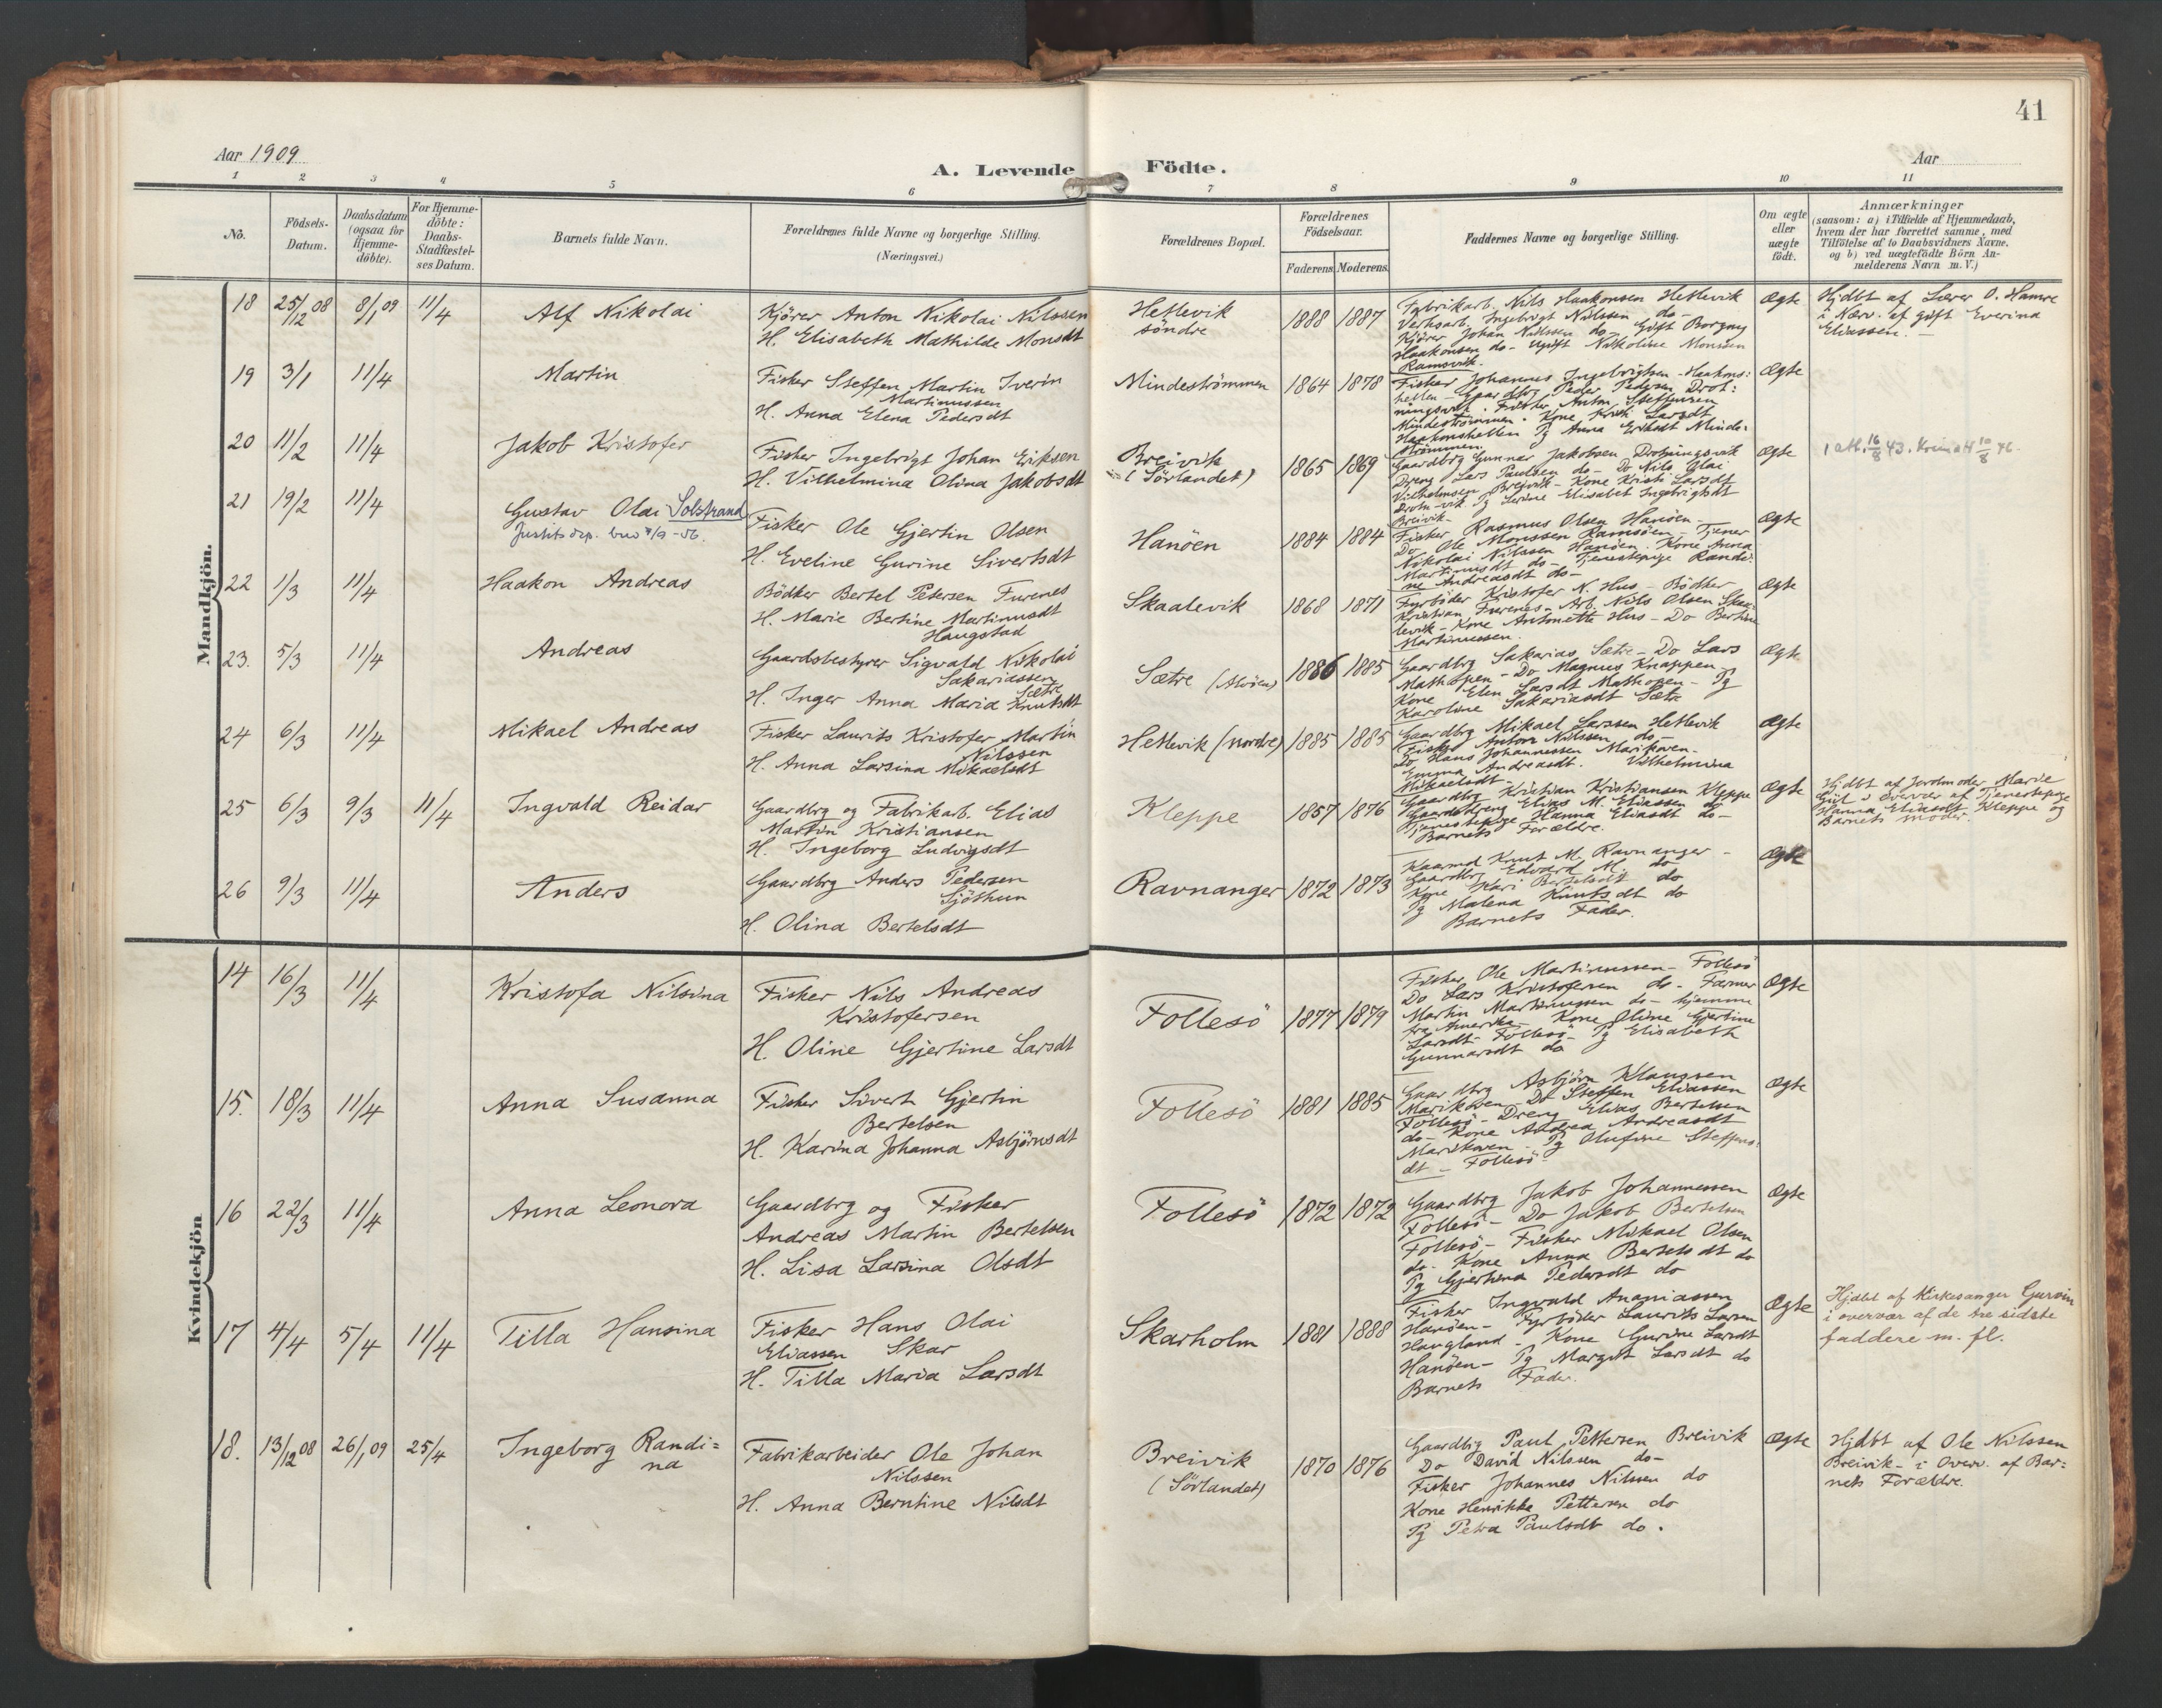 41
Aar 1909
A. Levende Födte.
Aar
1 2 3 4 5 6 7 8 9 10 11
No.
Födsels-Datum.
Daabsdatum (ogsaa for Hjemme-döbte).
For Hjemme-döbte: Daabs-Stadfæstel-ses Datum.
Barnets fulde Navn.
Forældrenes fulde Navne og borgerlige Stilling.
(Næringsvei.)
Forældrenes Bopæl.
Forældrenes Födselsaar.
Faderens. Moderens.
Faddernes Navne og borgerlige Stilling.
Om ægte eller uægte födt.
Anmærkninger
(saasom: a) i Tilfælde af Hjemmedaab,
hvem der har forrettet samme, med
Tilföielse af to Daabsvidners Navne,
og b) ved uægtefödte Börn An-
melderens Navn m. V.)
Mandkjön.
18 25/12 08 8/1 09 11/4 Alf Nikolai
Kjörer Anton Nikolai Nilssen
H. Elisabeth Mathilde Monsdt
Hetlevik
söndre
1888 1887
Fabrikarb. Nils Haakonsen Hetlevik
Verksarb. Ingebrigt Nilssen do-
Kjörer Johan Nilssen do- Gift Borgny
Haakonsen do- Ugift Nikoline Monsen
Ramsvik.
Ægte
Hjdbt af Lærer O. Hamre
i Nærv. af gift Everina
Eliassen.-
19 3/1 11/4 Martin
Fisker Steffen Martin Iverin
Martinussen
H. Anna Elena Pedersdt
Mindeströmmen 1864 1878
Fisker Johannes Ingebrigtsen - Haakons:
hellen - Gaardbrg Peder Pedersen Drot:
ningsvik. Fisker Anton Steffensen
Mindeströmmen. Kone Kristi Larsdt
Haakonshellen Pg Anna Eriksdt Minde:
strömmen
Ægte
20 11/2 11/4 Jakob Kristofer
Fisker Ingebrigt Johan Eriksen
H. Vilhelmina Olina Jakobsdt
Breivik
(Sörlandet)
1865 1869
Gaardbrg Gunnar Jakobsen Drotningsvik
Dreng Lars Paulsen do- Do Nils Olai
Vilhelmsen Breivik - Kone Kristi Larsdt
Drotn-vik. Pg Serine Elisabet Ingebrigtsdt
Breivik-
Ægte
21 19/2 11/4 Gustav Olai Solstrand
Justitsdep.
Fisker Ole Gjertin Olsen
H. Eveline Gurine Sivertsdt
Hanöen 1884 1884
Fisker Rasmus Olsen Hanöen-
Do Ole Monssen Ramsöen, Tjener
Nikolai Nilssen Hanöen. Kone Anna
Martinusdt do- Tjenestepige Randi:
ne Andreasdt do-
Ægte
22 1/3 11/4 Haakon Andreas
Bödker Bertel Petersen Furenes
H. Marie Bertine Martinusdt
Haugstad
Skaalevik 1868 1871
Fyrböder Kristofer N. Hus - Bödker
Kristian Furenes - Arb. Nils Olsen Skaa:
levik - Kone Antonette Hus - Do Bertine
Martinussen.
Ægte
23. 5/3 11/4 Andreas
Gaardsbestyrer Sigvald Nikolai
Sakariassen
Sætre
H. Inger Anna Maria Knutsdt
Sætre (Alvöen) 1886 1885
Gaardbrg Sakarias Sætre - Do Lars
Mathopen - Do Magnus Knappen -
Kone Elen Larsdt Mathopen - Pg
Karoline Sakariasdt Sætre
Ægte
24 6/3 11/4 Mikael Andreas
Fisker Laurits Kristofer Martin
Nilssen
H. Anna Larsina Mikaelsdt
Hetlevik (nordre) 1885 1885
Gaardbrg Mikael Larssen Hetlevik
Fisker Anton Nilssen do-
Do Hans Johannessen Marikoven-
Emma Andreasdt. Vilhelmina
Mikaelsdt -
Ægte
25 6/3 9/3 11/4 Ingvald Reidar
Gaardbrg og Fabrikarb. Elias
Martin Kristiansen
H. Ingeborg Ludvigsdt
Kleppe 1857 1876
Gaardbrg Kristian Kristiansen Kleppe
Gaarddreng Elias M. Eliassen do
Tjenestepige Hanna Eliasdt do-
Barnets Forældre.
Ægte
Hjdbt af Jordmoder Marie
i Overvær af Tjenestepige
Hanna Eliasdt Kleppe og
Barnets moder.
26 9/3 11/4 Anders
Gaardbrg Anders Pedersen
Sjöthun
H. Olina Bertelsdt
Ravnanger 1872 1873
Kaarmd Knut M. Ravnanger -
Gaardbrg Edvard M. do
Kone Kari Bertelsdt do
Pg Malena Knutsdt do
Barnets Fader.
Ægte
Kvindekjön
14 16/3 11/4 Kristofa Nilsina
Fisker Nils Andreas
Kristofersen
H. Oline Gjertine Larsdt
Follesö 1877 1879
Fisker Ole Martinussen - Follesö
Do Lars Kristofersen do - Farmer
Martin Martinussen do - hjemme
fra Amerika - Kone Oline Gjertine
Larsdt Follesö - Pg Elisabeth
Gunnarsdt do
Ægte
15. 18/3 11/4 Anna Susanna
Fisker Sivert Gjertin
Bertelsen
H. Karina Johanna Asbjörnsdt
Follesö 1881 1885
Gaardbrg Asbjörn Klaussen
Marikoven - Do Steffen Eliassen
Follesö - Dreng Elias Bertelsen
do - Kone Andrea Andreasdt
Marikoven - Pg Olufine Steffens:
dt - Follesö
Ægte
16 22/3 11/4 Anna Leonora
Gaardbrg og Fisker
Andreas Martin Bertelsen
H. Lisa Larsina Olsdt
Follesö 1872 1872
Gaardbrg Jakob Johannessen
Follesö - Do Jakob Bertelsen
Follesö - Fisker Mikael Olsen
do - Kone Anna Bertelsdt do
Pg Gjertina Pedersdt do
Ægte
17 4/4 5/4 11/4 Tilla Hansina
Fisker Hans Olai
Eliassen Skar
H. Tilla Maria Larsdt
Skarholm 1881 1888
Fisker Ingvald Ananiassen
Hanöen - Fyrböder Laurits Larsen
Haugland - Kone Gurine Larsdt
Hanöen - Pg Margit Larsdt do
Barnets Fader.
Ægte
Hjdbt af Kirkesanger Gurvin
i overvær af de tre sidste
faddere m. fl.
18. 13/12 08 26/1 09 25/4 Ingeborg Randi=
na
Fabrikarbeider Ole Johan
Nilssen
H. Anna Berntine Nilsdt
Breivik
(Sörlandet)
1870 1876
Gaardbrg Paul Pettersen Breivik
Do David Nilssen do-
Fisker Johannes Nilssen do
Kone Henrikke Pettersen do
Pg Petra Paulsdt do.
Ægte
Hjdbt af Ole Nilssen
Breivik - i Overv. af Bar:
nets Forældre.